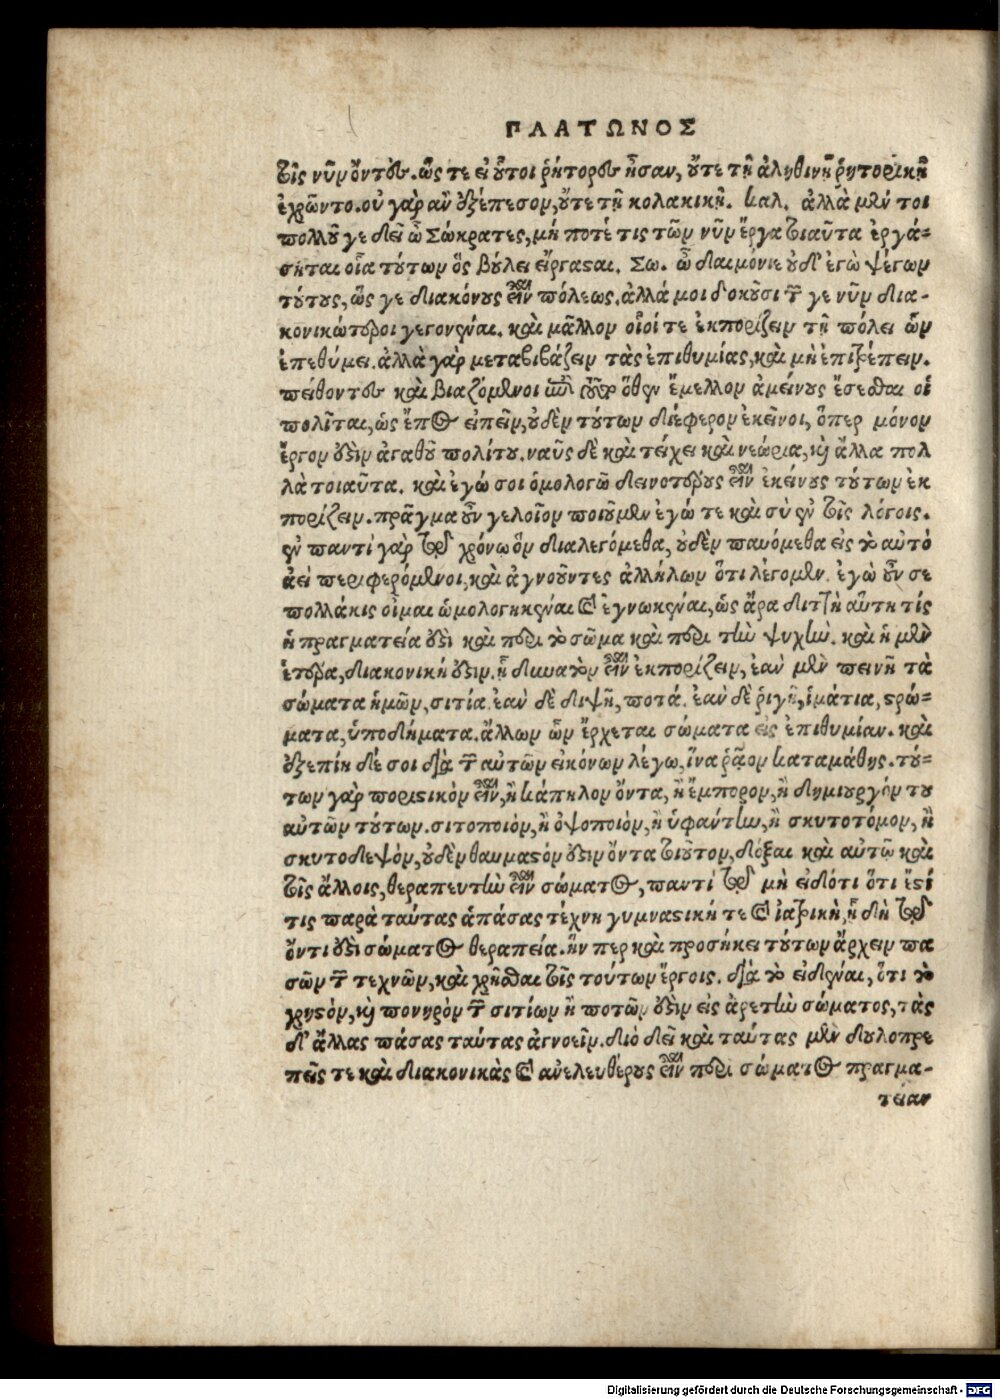 ΠΛΑΤΩΝΟΣ
τοῖς νῦν ὄντες. ὥς τε εἰ οὗτοι ῥήτορες ἦσαν, οὔτε τῇ ἀληθινῇ ῥητορικῇ
ἐχρῶντο. οὐ γὰρ ἂν ἐξέπεσον, οὔτε τῇ κολακικῇ. καλ. ἀλλὰ μέν τοι
πολλοῦ γε δεῖ ὦ Σώκρατες, μή ποτέ τις τῶν νῦν ἔργα τοιαῦτα ἐργά=
σηται οἷα τούτων ὃς βούλει εἴργασται. Σω. ὦ δαιμόνιε οὐδ' ἐγὼ ψέγω
τούτους, ὥς γε διακόνους εἶναι πόλεως. ἀλλά μοι δοκοῦσι τῶν γε νῦν δια-
κονικώτεροι γεγονέναι. καὶ μᾶλλον οἷοί τε ἐκπορίζειν τῇ πόλει ὧν
ἐπεθύμει. ἀλλὰ γὰρ μεταβιβάζειν τὰς ἐπιθυμίας, καὶ μὴ ἐπιτρέπειν.
πείθοντες καὶ βιαζόμενοι ἐπὶ τοῦτο ὅθεν ἔμελλον ἀμείνους ἔσεσθαι οἱ
πολῖται, ὡς ἔπος εἰπεῖν, οὐδὲν τούτων διέφερον ἐκεῖνοι, ὅπερ μόνον
ἔργον ἐστὶν ἀγαθοῦ πολίτου. ναῦς δὲ καὶ τείχει καὶ νεώρια, καὶ ἄλλα πολ
λὰ τοιαῦτα. καὶ ἐγώ σοι ὁμολογῶ δεινοτέρους εἶναι ἐκείνους τούτων ἐκ
πορίζειν. πρᾶγμα οὖν γελοῖον ποιοῦμεν ἐγώ τε καὶ σὺ ἐν τοῖς λόγοις.
ἐν παντὶ γὰρ τῷ χρόνῳ ὃν διαλεγόμεθα, οὐδὲν παυόμεθα εἰς τὸ αὐτὸ
ἀεὶ περιφερόμενοι, καὶ ἀγνοοῦντες ἀλλήλων ὅτι λέγομεν. ἐγὼ οὖν σε
πολλάκις οἶμαι ὡμολογηκέναι καὶ ἐγνωκέναι, ὡς ἄρα διττὴ αὕτη τίς
ἡ πραγματεία ἐστὶ καὶ περὶ τὸ σῶμα καὶ περὶ τὴν ψυχήν. καὶ ἡ μὲν
ἑτέρα, διακονική ἐστιν. ᾗ δυνατὸν εἶναι ἐκπορίζειν, ἐὰν μὲν πεινῇ τὰ
σώματα ἡμῶν, σιτία. ἐὰν δὲ διψῇ, ποτά. ἐὰν δὲ ῥιγῇ, ἱμάτια, στρώ=
ματα, ὑποδήματα. ἄλλων ὧν ἔρχεται σώματα εἰς ἐπιθυμίαν. καὶ
ἐξεπίτηδές σοι διὰ τῶν αὐτῶν εἰκόνων λέγω, ἵνα ῥᾷον καταμάθῃς. τού=
των γὰρ ποριστικὸν εἶναι, ἢ κάπηλον ὄντα, ἢ ἔμπορον, ἢ δημιουργόν του
αὐτῶν τούτων. σιτοποιόν, ἢ ὀψοποιόν, ἢ ὑφάντην, ἢ σκυτοτόμον, ἢ
σκυτοδεψόν, οὐδὲν θαυμαστόν ἐστιν ὄντα τοιοῦτον, δόξαι καὶ αὑτῷ καὶ
τοῖς ἄλλοις, θεραπευτὴν εἶναι σώματος, παντὶ τῷ μὴ εἰδότι ὅτι ἐστί
τις παρὰ ταύτας ἁπάσας τέχνη γυμναστική τε καὶ ἰατρική, ἣ δὴ τῷ
ὄντι ἐστὶ σώματος θεραπεία. ἥν περ καὶ προσήκει τούτων ἄρχειν πα
σῶν τῶν τεχνῶν, καὶ χρῆσθαι τοῖς τούτων ἔργοις. διὰ τὸ εἰδέναι, ὅτι τὸ
χρηστόν, καὶ πονηρὸν τῶν σιτίων ἢ ποτῶν ἐστὶν εἰς ἀρετὴν σώματος, τὰς
δ' ἄλλας πάσας ταύτας ἀγνοεῖν. διὸ δεῖ καὶ ταύτας μὲν δουλοπρε
πεῖς τε καὶ διακονικὰς καὶ ἀνελευθέρους εἶναι περὶ σώματος πραγμα-
τείαν
Digitalisierung gefördert durch die Deutsche Forschungsgemeinschaft - DFG